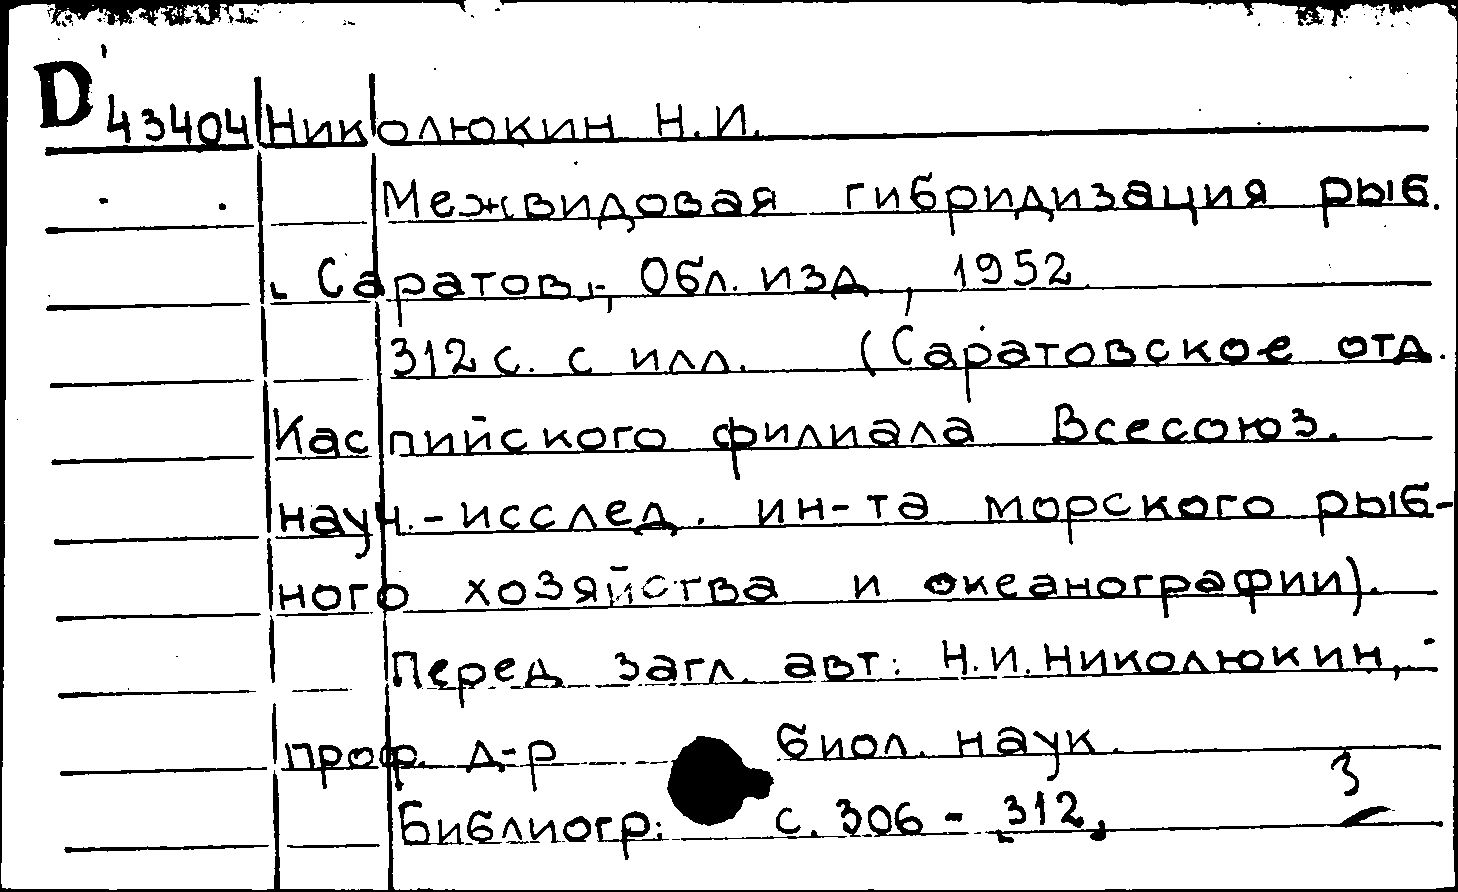 D 43404 Николюкин Н.И.
Межвидовая гибридизация рыб.
Саратов, Обл. изд., 1952.
312 с. с илл. (Саратовское отд.
Каспийского филиала Всесоюз.
науч.-исслед. ин-та морского рыб-
ного хозяйства и океанографии).
Перед загл. авт: Н.И. Николюкин,
проф. д-р биол. наук.
3
Библиогр: с. 306 - 312.